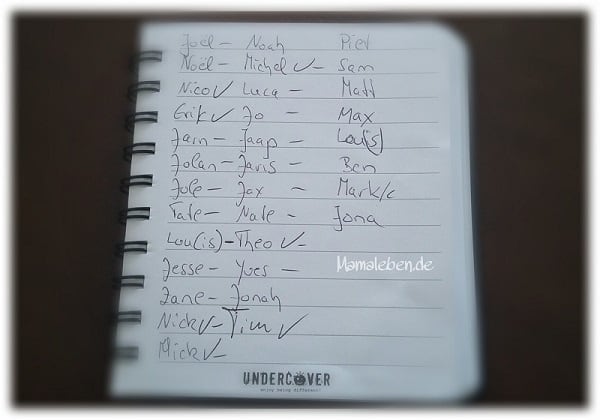 Joël – Noah Piet
Noël – Michel ✓ – Sam
Nico ✓ Luca – Matt
Erik ✓ Jo – Max
Jarn – Jaap – Lou(s)
Jolan – Jaris – Ben
Jole – Jax – Mark/c
Tate – Nate – Jona
Lou(is) – Theo ✓ –
Jesse – Yves –
Mamaleben.de
Zane – Jonah
Nick ✓ – Tim ✓
Mick ✓ –
UNDERCOVER
enjoy being different!